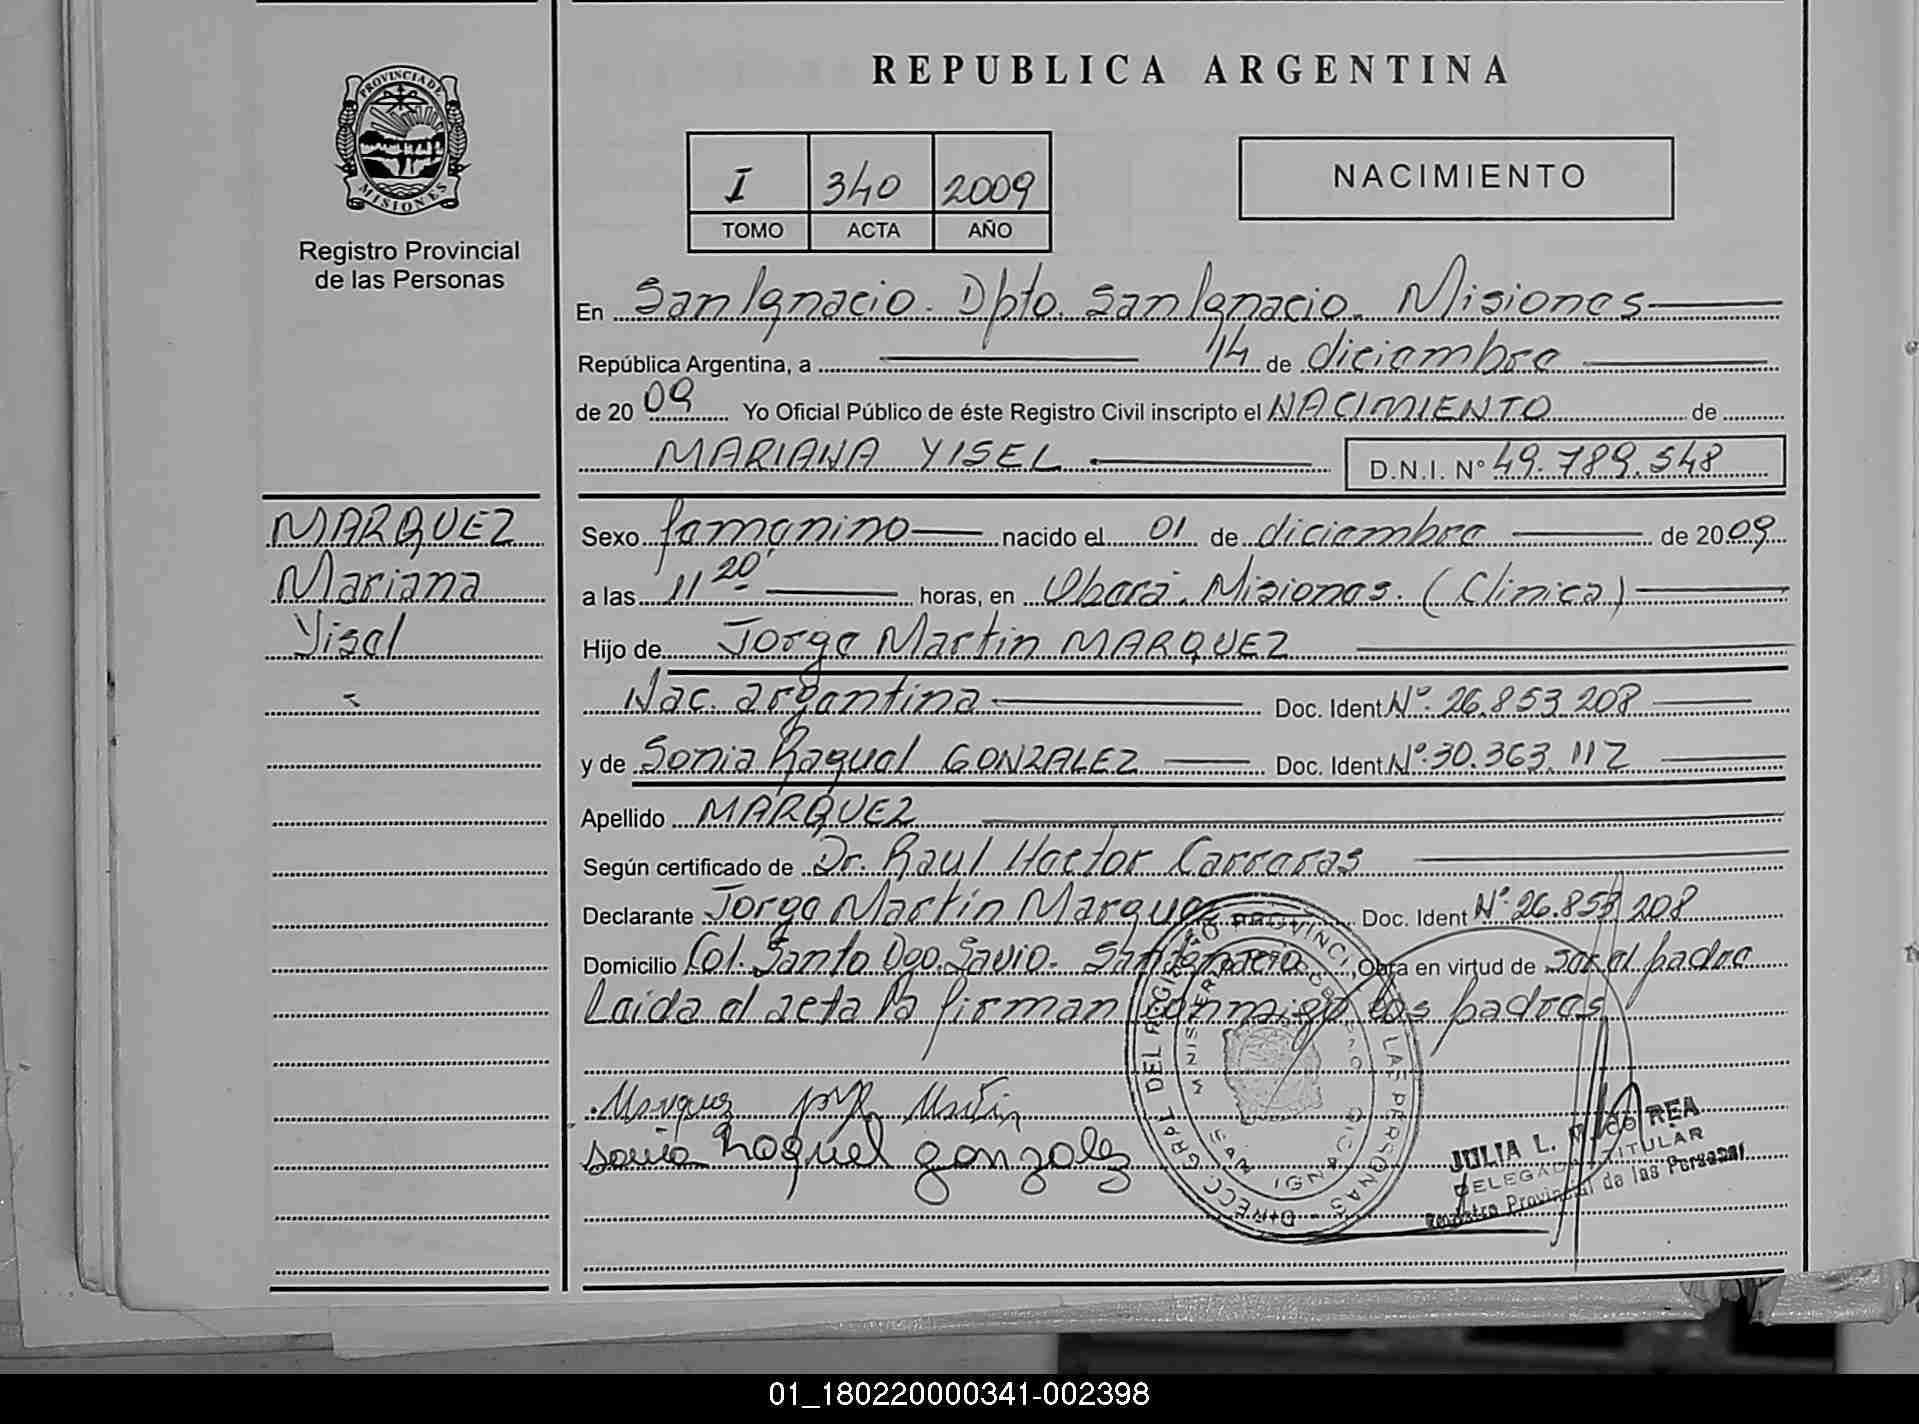 REPUBLICA ARGENTINA
PROVINCIA DE
MISIONES
Registro Provincial
de las Personas
I 340 2009
TOMO ACTA AÑO
NACIMIENTO
En San Ignacio. Dpto. San Ignacio. Misiones
República Argentina, a 14 de diciembre
de 2009 Yo Oficial Público de éste Registro Civil inscripto el NACIMIENTO de
MARIANA YISEL D.N.I. N° 49.789.548
MARQUEZ
Mariana
Yisel
Sexo femenino nacido el 01 de diciembre de 2009
a las 11 20' horas, en Oberá. Misiones. (Clinica)
Hijo de Jorge Martin MARQUEZ
Nac. argentina Doc. Ident N° 26.853.208
y de Sonia Raquel GONZALEZ Doc. Ident. N° 30.363.112
Apellido MARQUEZ
Según certificado de Dr. Raul Hector Carreras
Declarante Jorge Martin Marquez Doc. Ident N° 26.853.208
Domicilio Col. Santo Dgo. Savio. San Ignacio. Obra en virtud de ser el padre
Leida el acta la firman conmigo los padres
Marquez Martin
Sonia Raquel gonzalez
DIRECC. GRAL DEL REGISTRO PROVINCIAL DE LAS PERSONAS
JULIA L.
DELEGADA TITULAR
Registro Provincial de las Personas
01_180220000341-002398